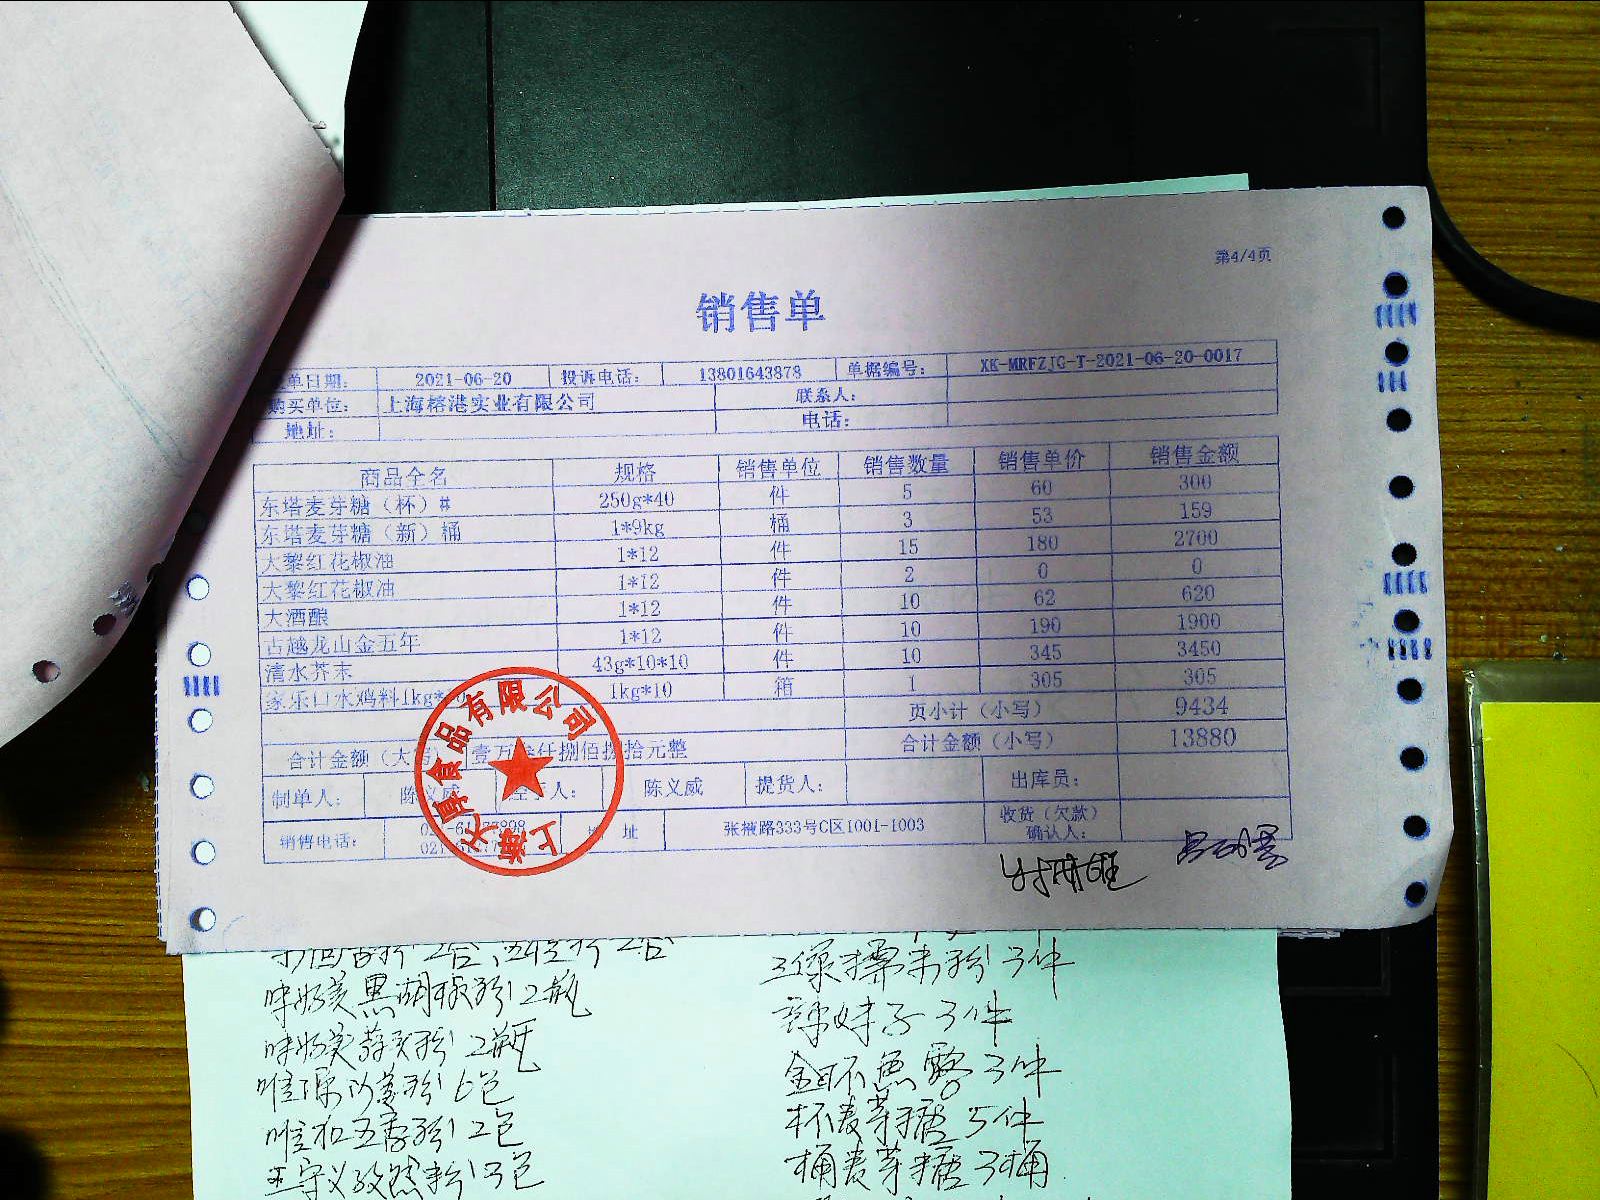 第4/4页
销售单
单日期： 2021-06-20 投诉电话： 13801643878 单据编号： XK-MRFZJG-T-2021-06-20-0017
购买单位： 上海榕港实业有限公司 联系人：
地址： 电话：
商品全名 规格 销售单位 销售数量 销售单价 销售金额
东塔麦芽糖（杯）# 250g*40 件 5 60 300
东塔麦芽糖（新）桶 1*9kg 桶 3 53 159
大黎红花椒油 1*12 件 15 180 2700
大黎红花椒油 1*12 件 2 0 0
大酒酿 1*12 件 10 62 620
古越龙山金五年 1*12 件 10 190 1900
清水芥末 43g*10*10 件 10 345 3450
家乐口水鸡料1kg* 1kg*10 箱 1 305 305
页小计（小写） 9434
合计金额（大写） 壹万叁仟捌佰捌拾元整 合计金额（小写） 13880
制单人： 陈义威 经手人： 陈义威 提货人： 出库员：
销售电话： 地址 张掖路333号C区1001-1003 收货（欠款）
确认人：
上海天厚食品有限公司
味好美黑胡椒粉 2瓶
味好美蒜香粉 2瓶
6包
五香粉 2包
王守义孜然粉 3包
3件
辣妹子 3件
3件
杯麦芽糖 5件
桶麦芽糖 3桶